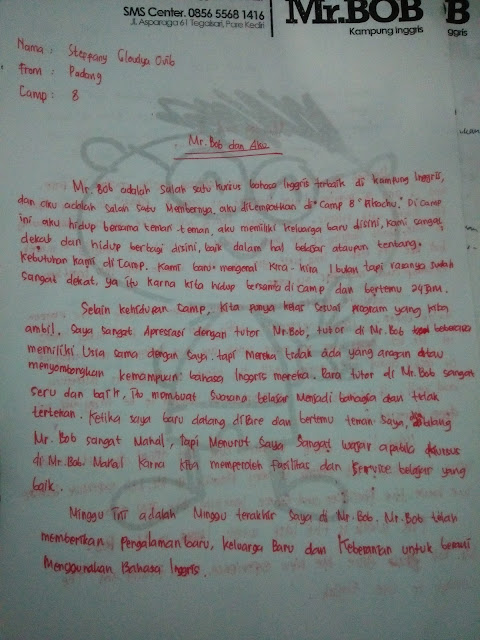 SMS Center. 0856 5568 1416
Jl. Asparaga 61 Tegalsari, Pare Kediri
Mr.BOB B
Kampung Inggris ggris
Nama : Steffany Cloudya Ovib
From : Padang
Camp : 8
Mr. Bob dan Aku
Mr. Bob adalah salah satu kursus bahasa Inggris terbaik di kampung Inggris,
dan aku adalah salah satu Membernya. aku ditempatkan di "Camp 8" Pikachu." Di Camp
ini aku hidup bersama teman-teman. aku memiliki keluarga baru disini, kami sangat
dekat dan hidup berbagi disini, baik dalam hal belajar ataupun tentang
kebutuhan kami di Camp. Kami baru mengenal kira-kira 1 bulan tapi rasanya sudah
sangat dekat. ya itu karna kita hidup bersama di Camp dan bertemu 24 Jam.
Selain kehidupan Camp, kita punya kelas sesuai program yang kita
ambil. Saya sangat Apresiasi dengan tutor Mr. Bob, tutor di Mr. Bob beberapa
memiliki Usia sama dengan Saya. tapi Mereka tidak ada yang arogan atau
menyombongkan kemampuan bahasa Inggris mereka. Para tutor di Mr. Bob sangat
seru dan baik, Itu membuat Suasana belajar Menjadi bahagia dan tidak
tertekan. Ketika saya baru datang di Pare dan bertemu teman Saya, bilang
Mr. Bob sangat Mahal, Tapi Menurut Saya Sangat wajar apabila kursus
di Mr. Bob Mahal Karna kita memperoleh Fasilitas dan service belajar yang
baik.
Minggu ini adalah Minggu terakhir Saya di Mr. Bob. Mr. Bob telah
memberikan Pengalaman baru, keluarga Baru dan Keberanian untuk
Menggunakan Bahasa Inggris.